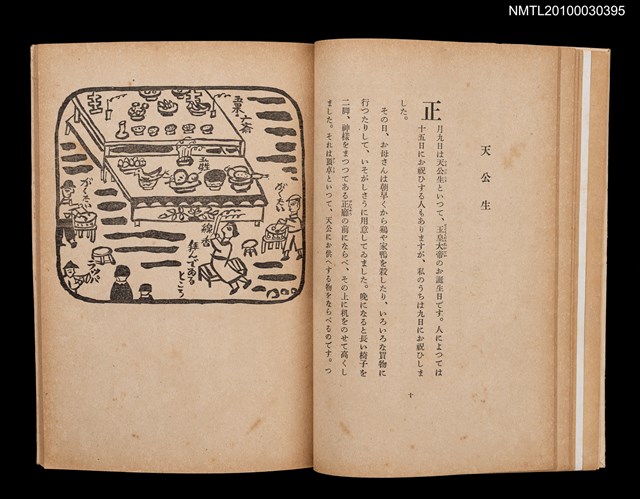 NMTL20100030395
天公生
正月九日は天公生といつて、玉皇大帝のお誕生日です。人によつては
十五日にお祝ひする人もありますが、私のうちは九日にお祝ひしま
した。
その日、お母さんは朝早くから鶏や家鴨を殺したり、いろいろな買物に
行つたりして、いそがしさうに用意してゐました。晩になると長い椅子を
二脚、神様をまつつてある正庁の前にならべ、その上に机をのせて高くし
ました。それは頂卓といつて、天公にお供へする物をならべるのです。つ
十
五果六斎
五牲
がくたい
がくたい
線香
拝んであるところ
ラッパ